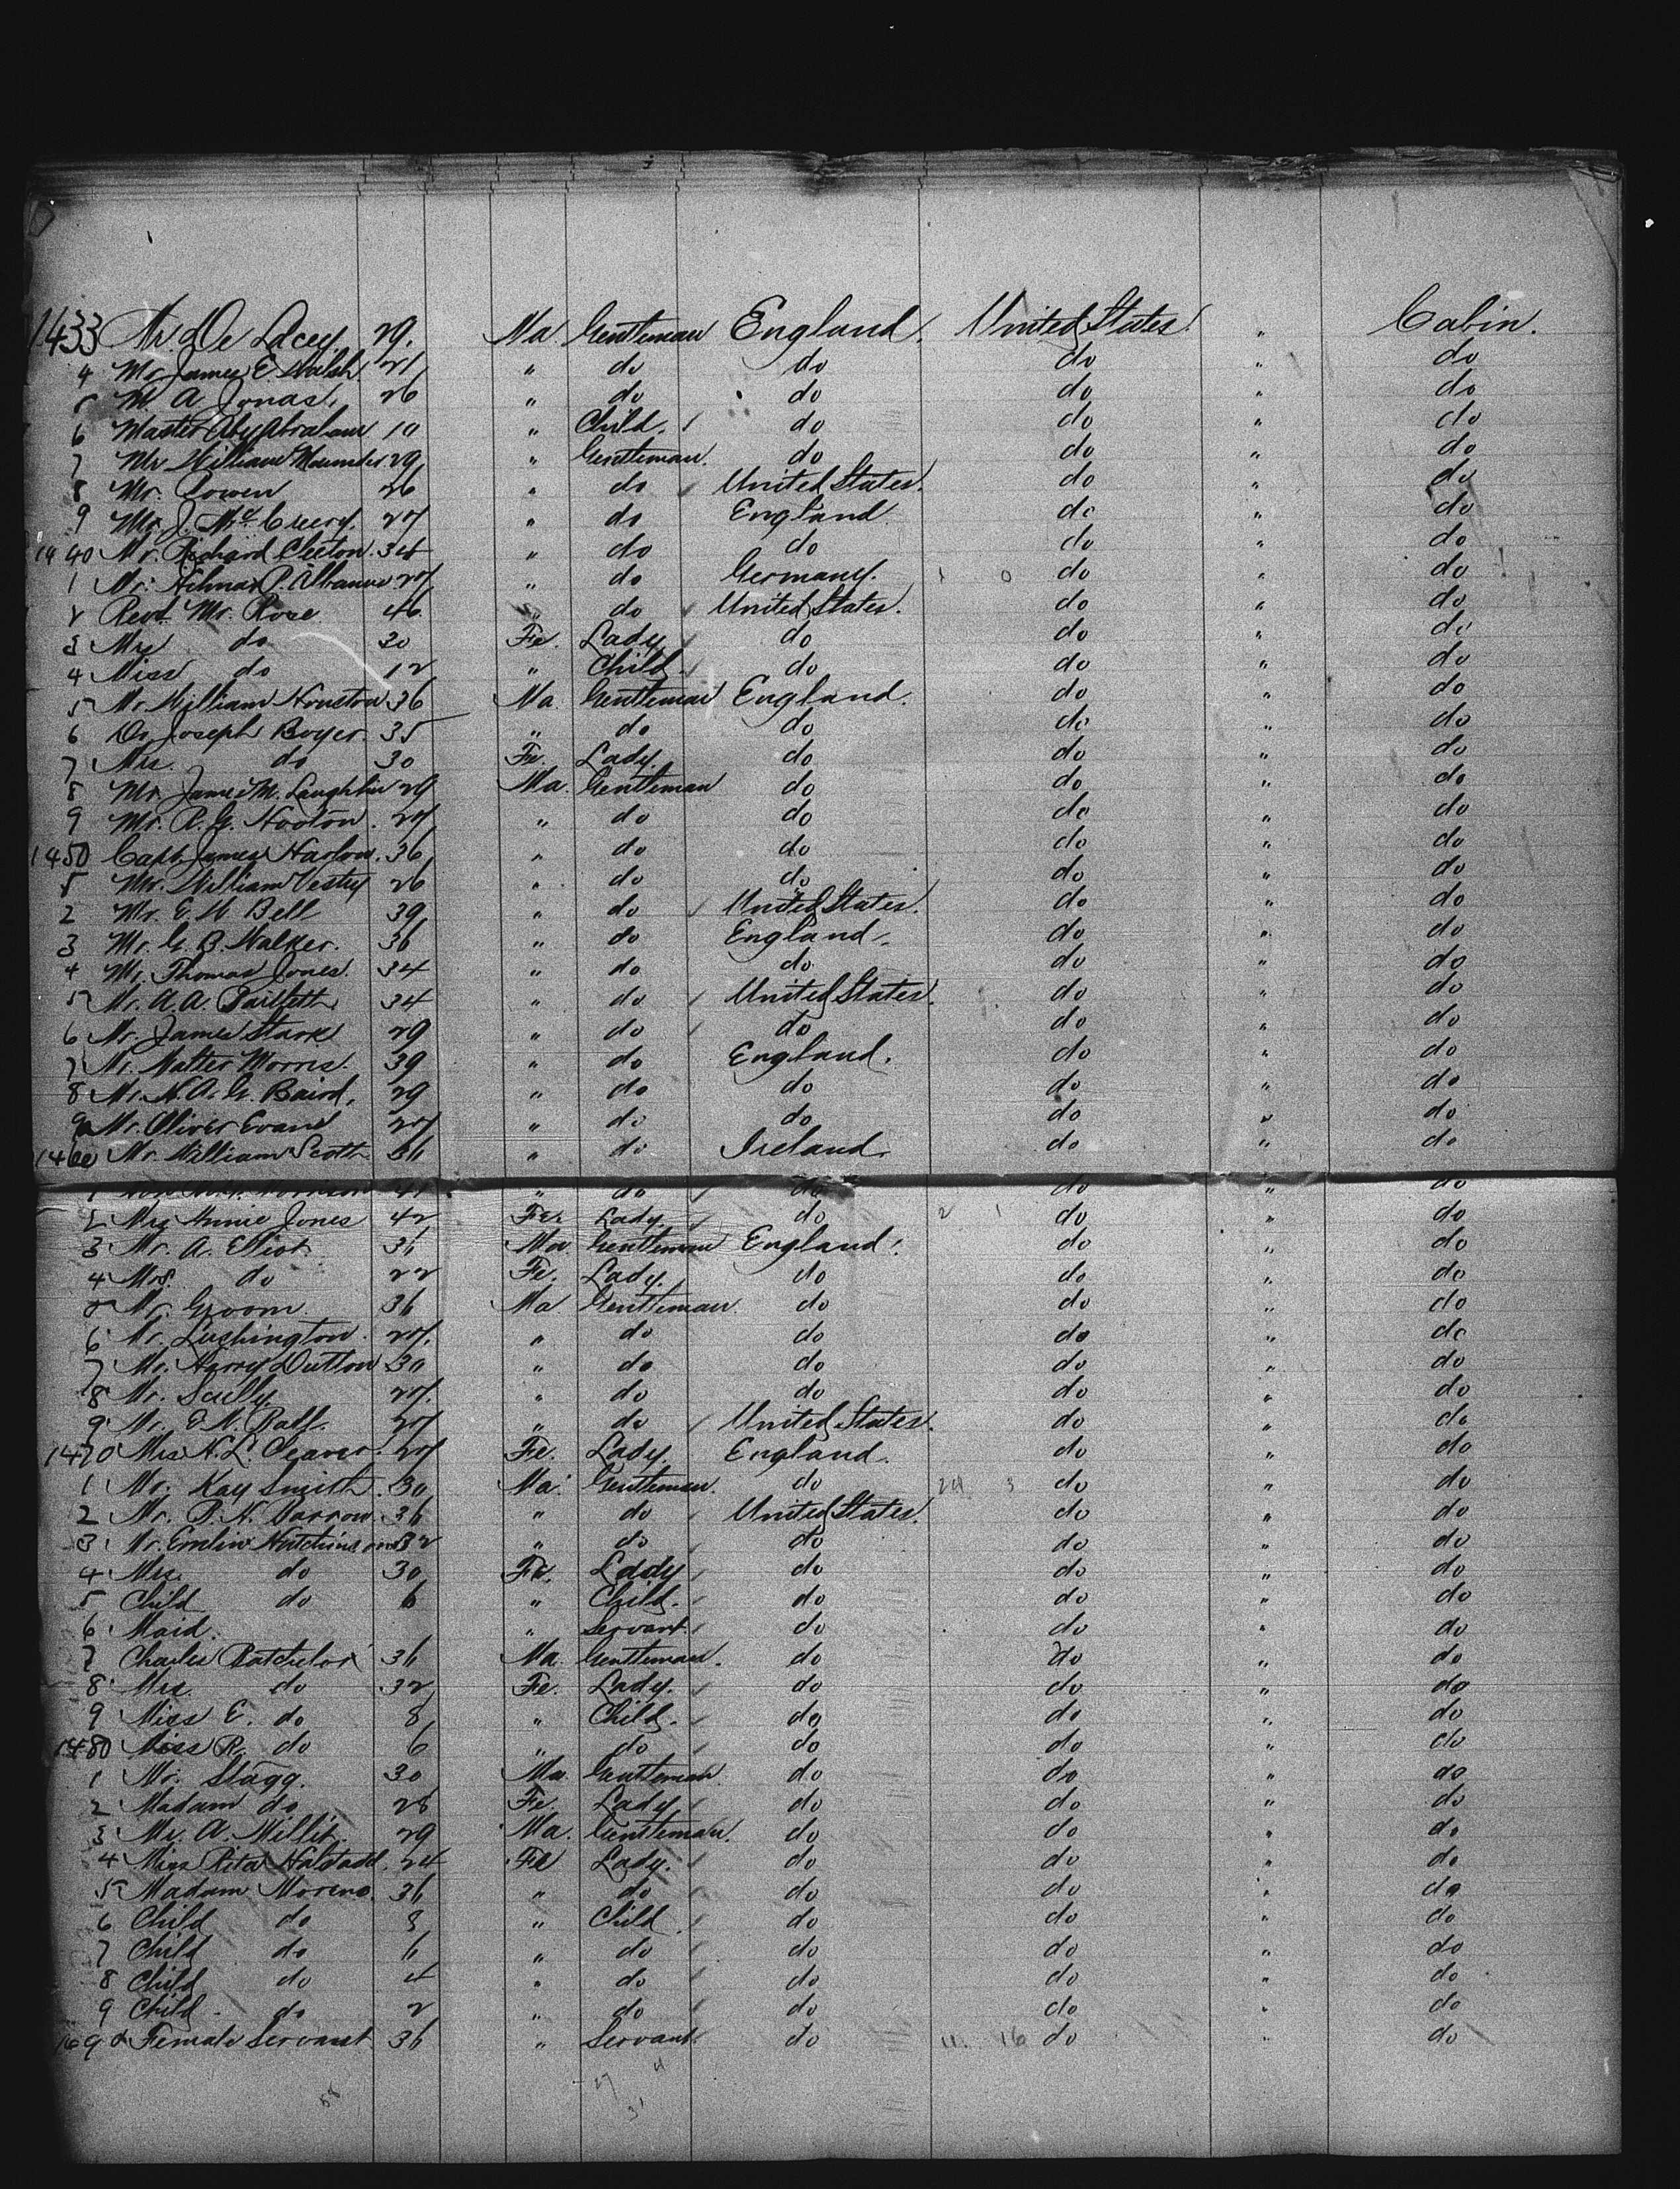 1433 Mr. De Lacey 29. Ma. Gentleman England. United States. " Cabin.
4 Mr James E Walsh 21 " do do do " do
5 M. A. Jonas, 26 " do do do " do
6 Master Aby Abraham 10 " Child. do do " do
7 Mr William Maunder 29 " Gentleman. do do " do
8 Mr. Cowen 26 " do United States. do " do
9 Mr. J. McCreery. 27 " do England do " do
1440 Mr. Richard Cleeton. 34 " do do do " do
1 Mr. P. 27 " do Germany. 1 0 do " do
2 Revd. Mr. Rose 46 " do United States. do " do
3 Mrs do 30 Fe. Lady do do " do
4 Miss do 12 " Child. do do " do
5 Mr William Houston 36 Ma. Gentleman England. do " do
6 Dr. Joseph Boyer 35 " do do do " do
7 Mrs. do 30 Fe. Lady. do do " do
8 Mr. James M. Laughlin 29 Ma. Gentleman do do " do
9 Mr. R. G. Hooton. 27 " do do do " do
1450 Capt. James Harlow. 36 " do do do " do
5 Mr. William Vestey 26 " do do do " do
2 Mr. E. H Bell 39 " do United States. do " do
3 Mr. G. B. Walker. 36 " do England. do " do
4 Mr. Thomas Jones. 34 " do do do " do
5 Mr. A. A. Bartlett 34 " do United States. do " do
6 Mr. James Stark 29 " do do do " do
7 Mr. Walter Morris. 39 " do England. do " do
8 Mr. N. A. G. Baird. 29 " do do do " do
9 Mr. Oliver Evans 27 " do do do " do
1460 Mr. William Scott 36 " do Ireland. do " do
1 41 " do do do " do
2 Mrs Annie Jones 42 Fe. Lady. do 2 1 do " do
3 Mr. A. Elliot 36 Ma Gentleman England. do " do
4 Mrs. do 22 Fe. Lady. do do " do
5 Mr. Groom. 36 Ma Gentleman do do " do
6 Mr. Lushington. 27. " do do do " do
7 Mr. Harry Dutton 30 " do do do " do
8 Mr. Scully 27. " do do do " do
9 Mr. E. N. Ball. 27 " do United States. do " do
1470 Mrs N. L. Cleaver. 27 Fe. Lady. England. do " do
1 Mr. Kay Smith. 30 Ma. Gentleman. do 24 3 do " do
2 Mr. P. N. Barrow. 36 " do United States. do " do
3 Mr. Emlin Hutchinson 32 " do do do " do
4 Mrs. do 30 Fe. Lady do do " do
5 Child do 6 " Child. do do " do
6 Maid. " Servant. do do " do
7 Charles Batchelor 36 Ma. Gentleman. do do " do
8 Mrs. do 32 Fe. Lady. do do " do
9 Miss E. do 8 " Child. do do " do
1480 Miss R. do 6 " do do do " do
1 Mr. Stagg. 30 Ma. Gentleman do do " do
2 Madam do 28 Fe. Lady do do " do
3 Mr. A. Millit. 29 Ma. Gentleman. do do " do
4 Miss Rita Halstadd. 24 Fe Lady. do do " do
5 Madam Moreno. 36 " do do do " do
6 Child do 8 " Child do do " do
7 Child do 6 " do do do " do
8 Child do 4 " do do do " do
9 Child. do 2 " do do do " do
Female Servant 36 " Servant do 11. 16 do " do
58 27 4
31